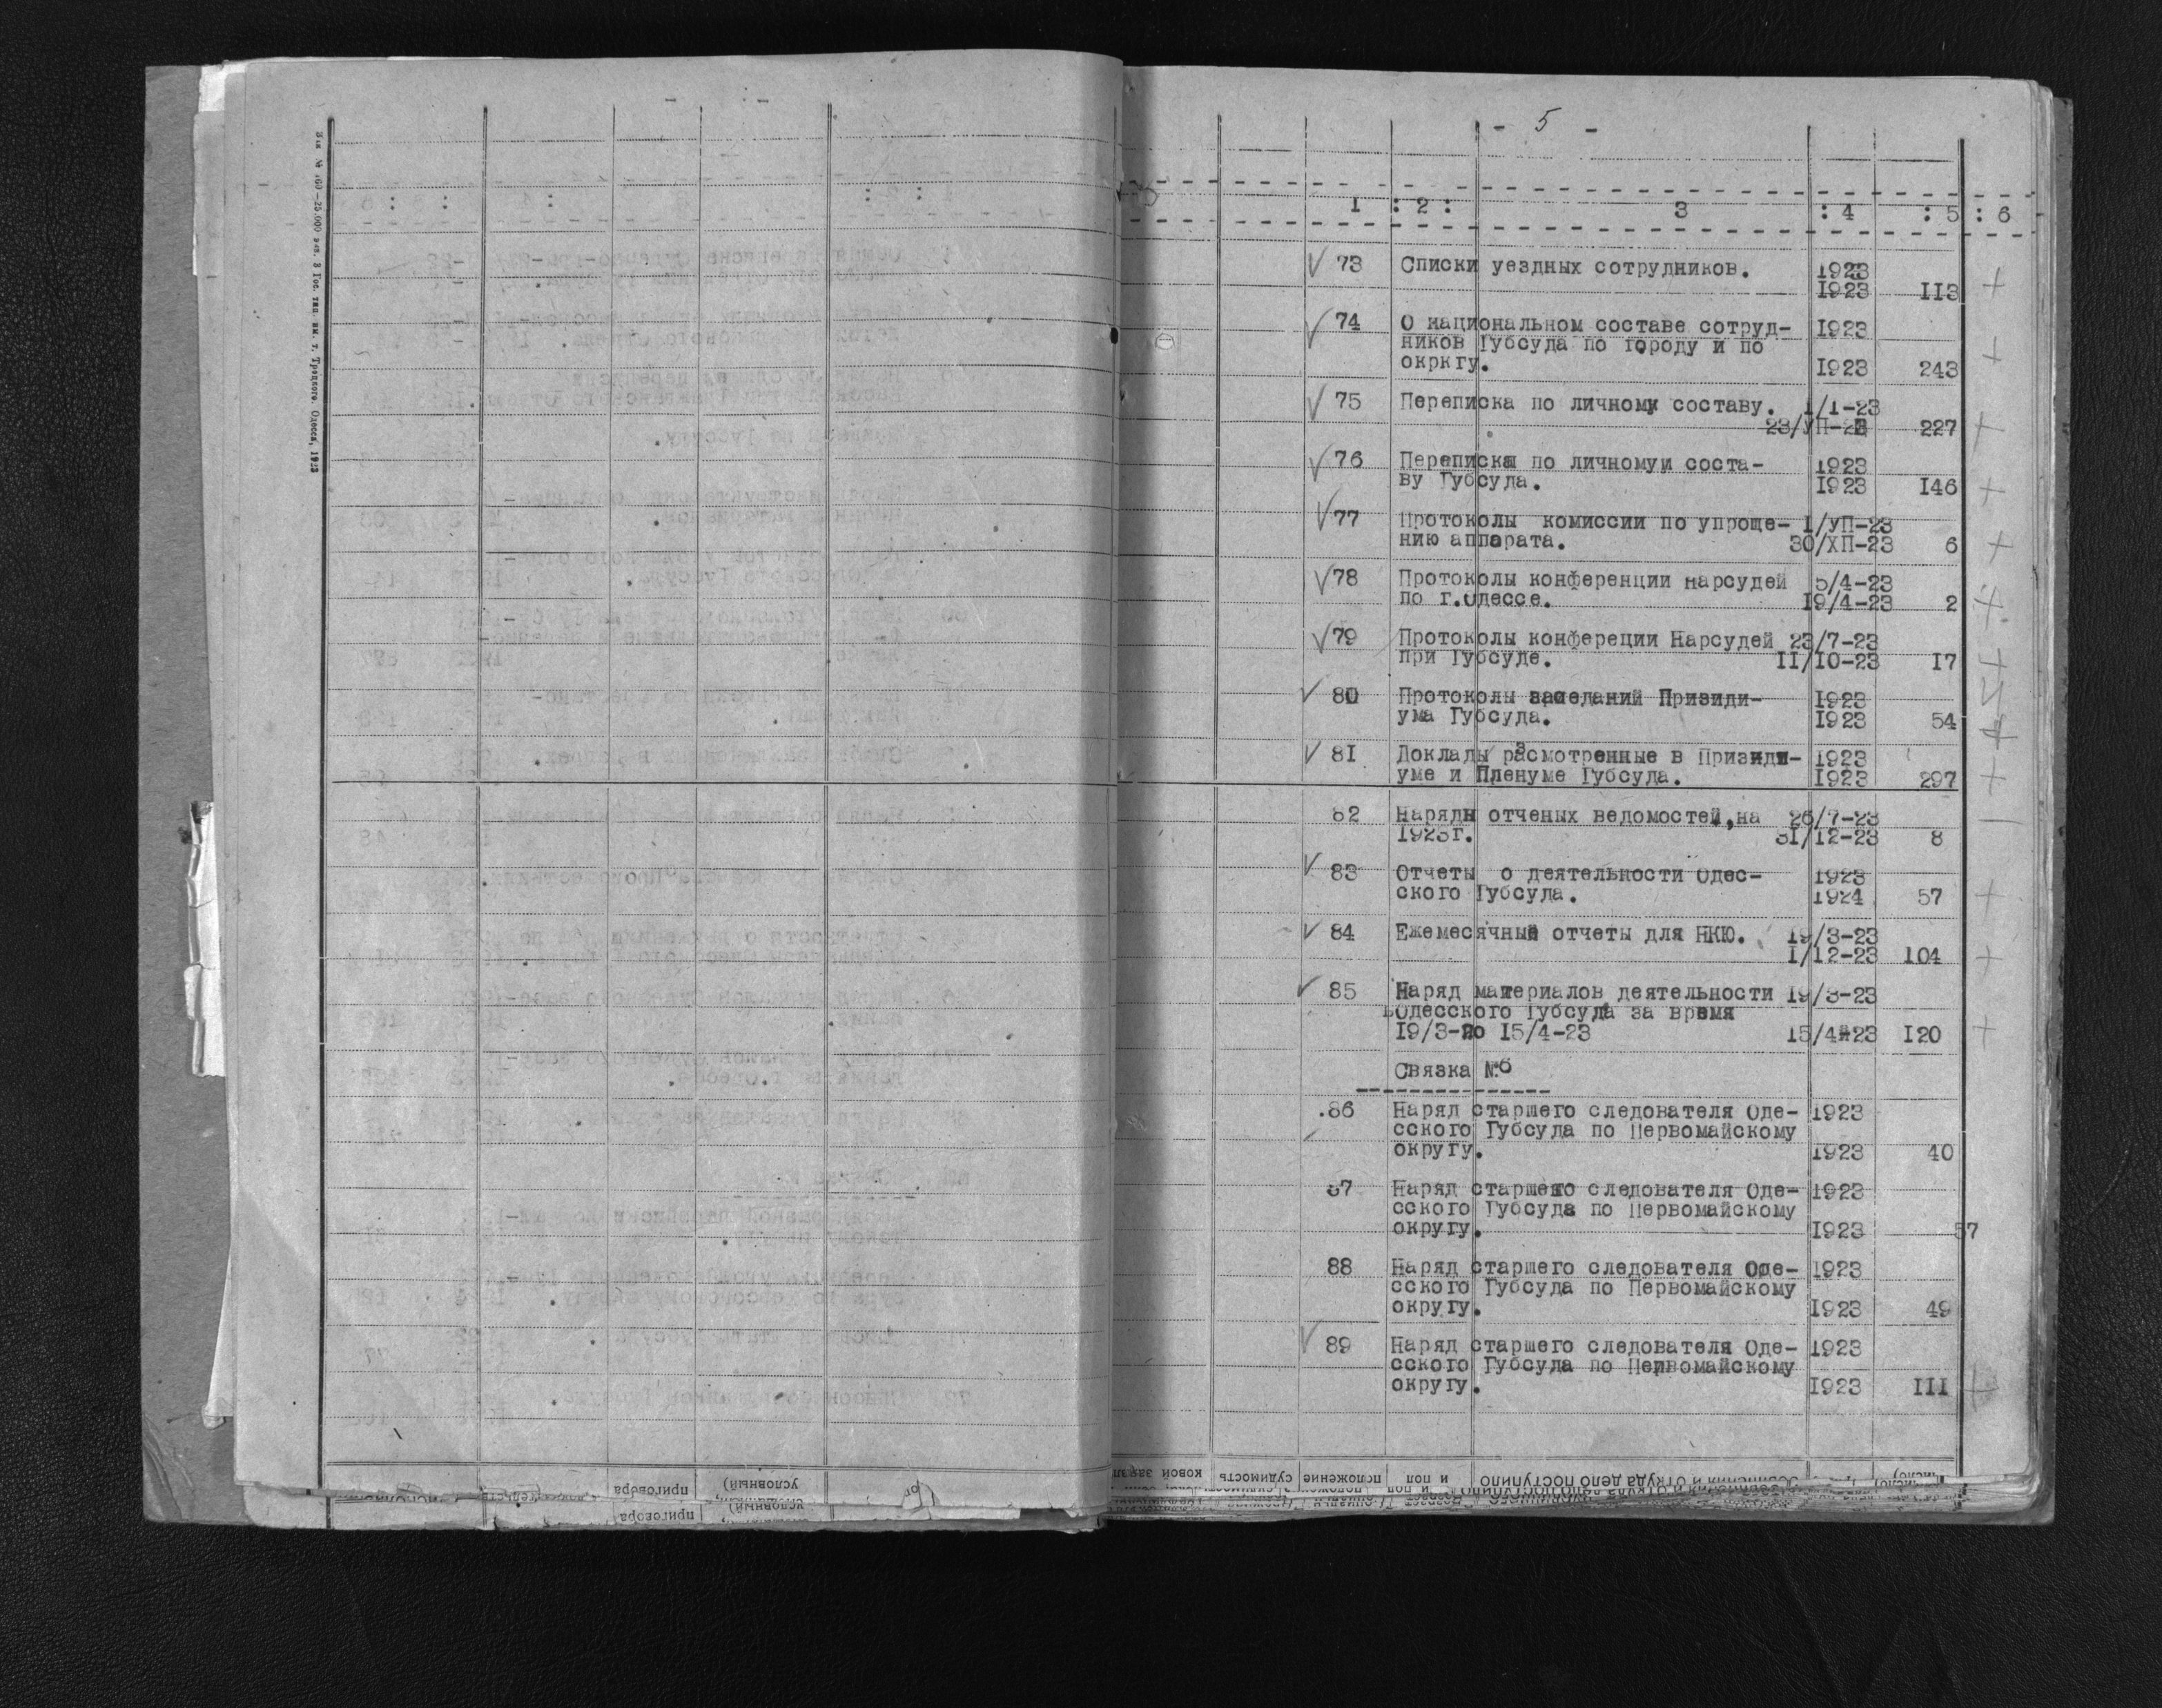 - 5 -
1 : 2 : 3 : 4 : 5 : 6
73 Списки уездных сотрудников. 1923
1923 113
74 О национальном составе сотруд- 1923
ников Губсуда по городу и по
окркгу. 1923 243
75 Переписка по личному составу. 1/1-23
23/УП-23 227
76 Переписка по личному соста- 1923
ву Губсуда. 1923 146
77 Протоколы комиссии по упроще- I/УП-23
нию аппарата. 30/ХП-23 6
78 Протоколы конференции нарсудей 5/4-23
по г.Одессе. 19/4-23 2
79 Протоколы конфереции Нарсудей 23/7-23
при Губсуде. 11/10-23 17
80 Протоколы заседаний Призиди- 1923
ума Губсуда. 1923 54
81 Доклады разсмотренные в Призиди- 1923
уме и Пленуме Губсуда. 1923 297
82 Наряды отченых ведомостей,на 26/7-23
1923г. 31/12-23 8
83 Отчеты о деятельности Одес- 1923
ского Губсуда. 1924 57
84 Ежемесячный отчеты для НКЮ. 19/3-23
1/12-23 104
85 Наряд материалов деятельности 19/3-23
Одесского Губсуда за время
19/3-по 15/4-23 15/4-23 120
Связка №6
86 Наряд старшего следователя Оде- 1923
сского Губсуда по Первомайскому
округу. 1923 40
87 Наряд старшего следователя Оде- 1923
сского Губсуда по Первомайскому
округу. 1923 57
88 Наряд старшего следователя Оде- 1923
сского Губсуда по Первомайскому
округу. 1923 49
89 Наряд старшего следователя Оде- 1923
сского Губсуда по Первомайскому
округу. 1923 111